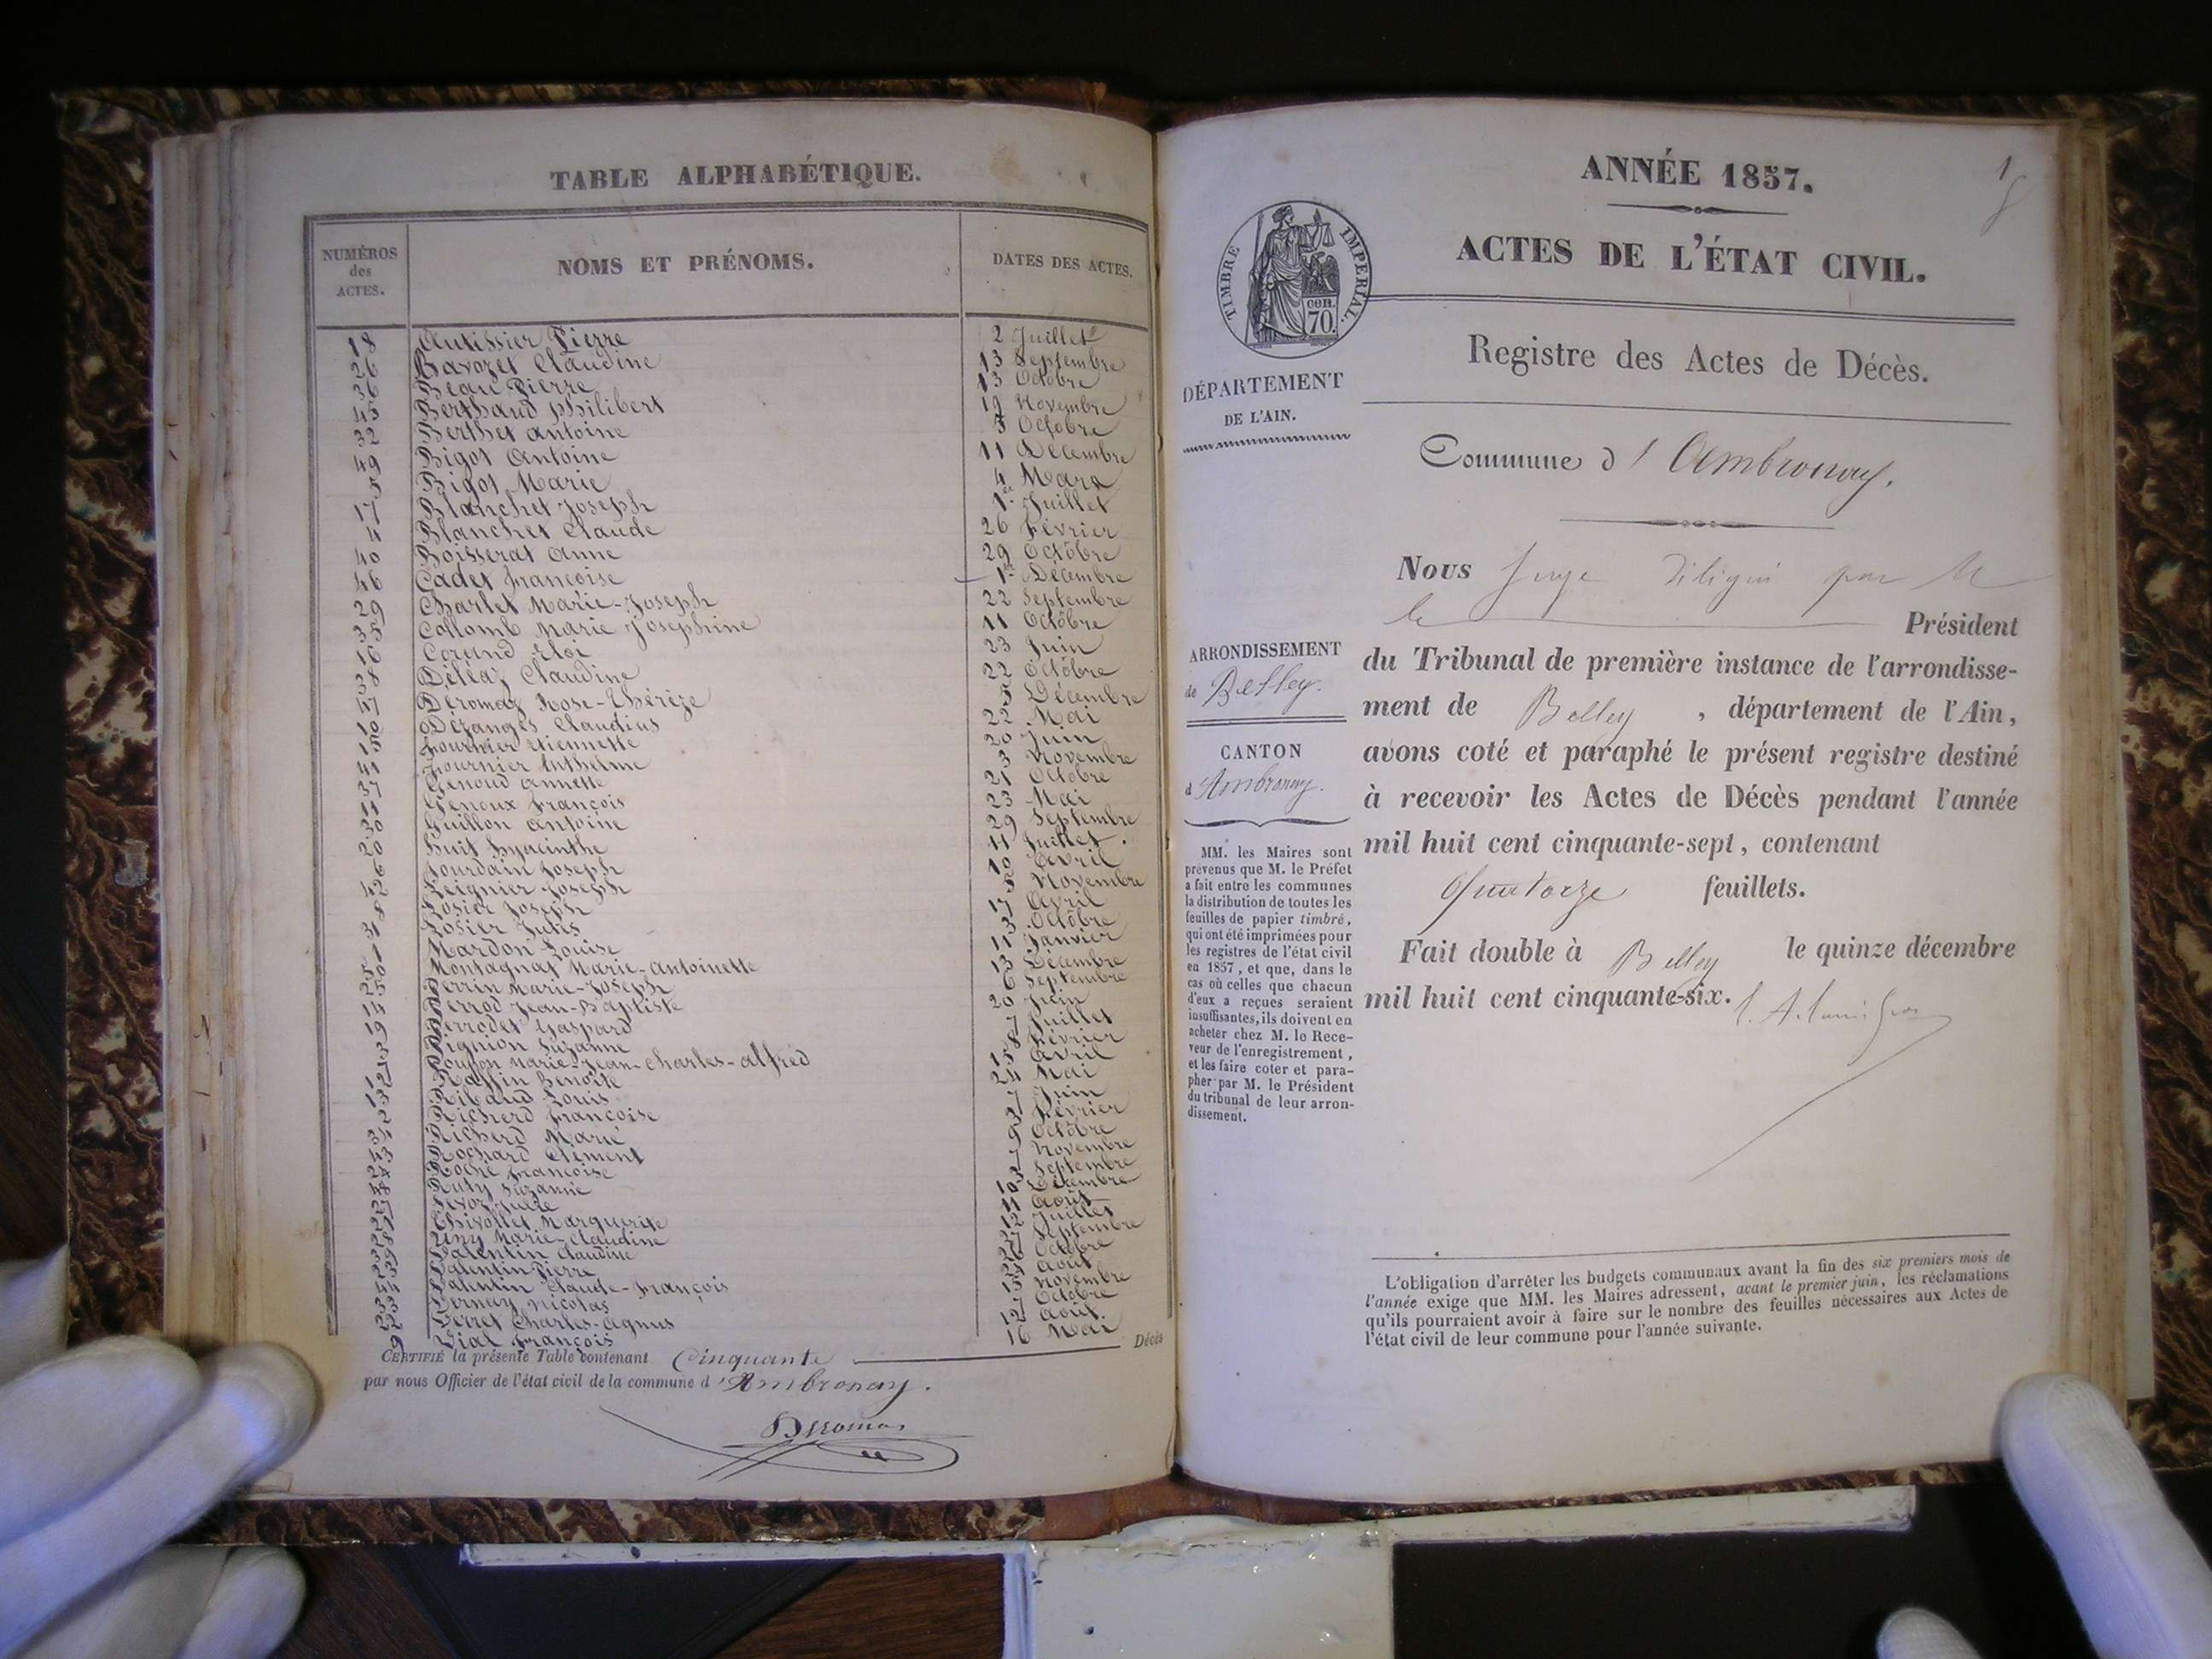 TABLE ALPHABÉTIQUE.
NUMÉROS des ACTES.
NOMS ET PRÉNOMS.
DATES DES ACTES.
18 Autissier Pierre 2 Juillet
26 Bavozet Claudine 13 Septembre
36 Beau Pierre 13 Octobre
45 Berthaud Philibert 19 Novembre
32 Berthet Antoine 3 Octobre
49 Bigot Antoine 11 Décembre
5 Bigot Marie 4 Mars
17 Blanchet Joseph 1er Juillet
4 Blanchet Claude 26 Février
40 Boisserat Anne 29 Octobre
46 Cadet Françoise 1er Décembre
29 Charlet Marie-Joseph 22 Septembre
35 Collomb Marie Josephine 11 Octobre
16 Corand Eloi 23 Juin
38 Déléaz Claudine 22 Octobre
47 Déromaz Rose-Thérèze 5 Décembre
10 Dézanges Claudius 22 Mai
15 Fournier Etiennette 20 Juin
41 Fournier Anthelme 3 Novembre
37 Genoud Annette 21 Octobre
11 Genoux François 23 Mai
30 Guillon Antoine 29 Septembre
20 Huit Hyacinthe 11 Juillet.
6 Jourdain Joseph 10 Avril
42 Leignier Joseph 5 Novembre
8 Losier Joseph 17 Avril
31 Losier Jules Octobre
1 Mardon Louise 11 Janvier
50 Montagnat Marie-Antoinette 13 Décembre
25 Perrin Marie-Joseph 6 Septembre
14 Perrod Jean-Baptiste 20 Juin
19 Perrodet Gaspard 7 Juillet
Pignion Suzanne 8 Février
Marie-Jean-Charles-Alfred 15 Avril
12 Raffin Benoîte 24 Mai
13 Ribaud Louis 7 Juin
2 Richerd Françoise Février
34 Richerd Marie 9 Octobre
43 Rochard Clément 7 Novembre
24 Roche Françoise Septembre
48 Ruty Suzanne 10 Décembre
Julie Août
21 Thivollet Marguerite 12 Juillet
28 Uny Marie-Claudine Septembre
39 Valentin Claudine Octobre
Valentin Pierre Août
44 Valentin Claude-François Novembre
33 Vernay Nicolas 7 Octobre
22 Veret Charles-Agnus 12 Août.
9 Vial François 16 Mai
CERTIFIÉ la présente Table contenant Cinquante Décès
par nous Officier de l'état civil de la commune d'Ambronay.
Déromas
1
ANNÉE 1857.
TIMBRE IMPÉRIAL.
CEN. 70.
ACTES DE L'ÉTAT CIVIL.
Registre des Actes de Décès.
DÉPARTEMENT
DE L'AIN.
Commune d'Ambronay.
ARRONDISSEMENT
de Belley.
CANTON
d'Ambronay.
MM. les Maires sont
prévenus que M. le Préfet
a fait entre les communes
la distribution de toutes les
feuilles de papier timbré,
qui ont été imprimées pour
les registres de l'état civil
en 1857, et que, dans le
cas où celles que chacun
d'eux a reçues seraient
insuffisantes, ils doivent en
acheter chez M. le Rece-
veur de l'enregistrement,
et les faire coter et para-
pher par M. le Président
du tribunal de leur arron-
dissement.
Nous Juge délégué par M
le Président
du Tribunal de première instance de l'arrondisse-
ment de Belley, département de l'Ain,
avons coté et paraphé le présent registre destiné
à recevoir les Actes de Décès pendant l'année
mil huit cent cinquante-sept, contenant
quatorze feuillets.
Fait double à Belley le quinze décembre
mil huit cent cinquante-six.
L'obligation d'arrêter les budgets communaux avant la fin des six premiers mois de
l'année exige que MM. les Maires adressent, avant le premier juin, les réclamations
qu'ils pourraient avoir à faire sur le nombre des feuilles nécessaires aux Actes de
l'état civil de leur commune pour l'année suivante.